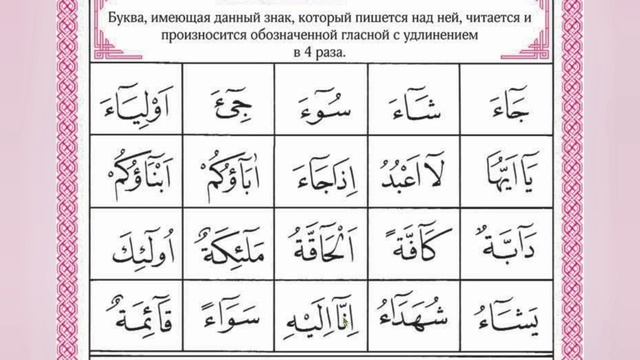 Буква, имеющая данный знак, который пишется над ней, читается и
произносится обозначенной гласной с удлинением
в 4 раза.
جَٓاءَ شَٓاءَ سُٓوءَ جِٓىءَ اَوْلِيَٓاءَ
يَٓا اَيُّهَا لَٓا اَعْبُدُ اِذَاجَٓاءَ اٰبَٓاؤُكُمْ اَبْنَٓاؤُكُمْ
دَٓابَّةٌ كَٓافَّةً اَلْحَٓاقَّةُ مَلٰٓئِكَةٌ اُولٰٓئِكَ
يَشَٓاءُ شُهَدَٓاءُ اِنَّٓا اِلَيْهِ سَوَٓاءً قَٓائِمَةٌ